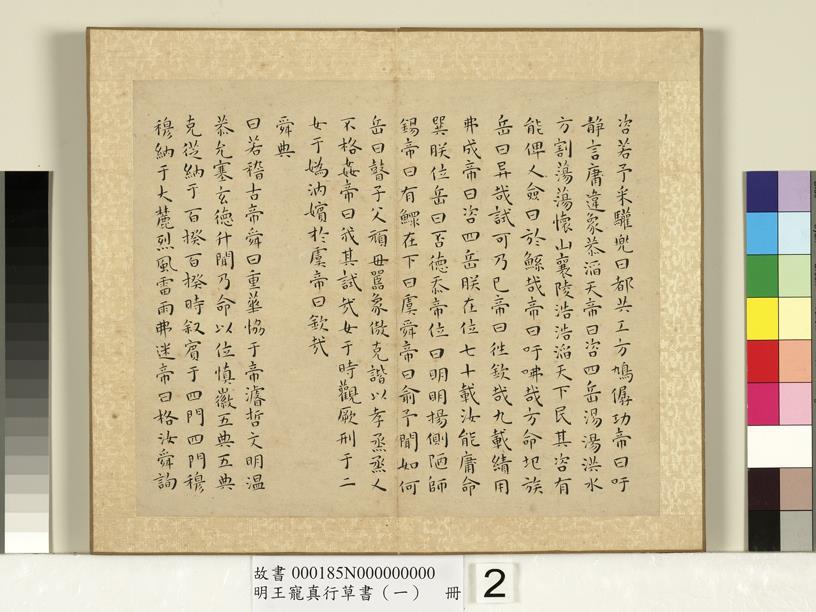 咨若予采驩兜曰都共工方鳩僝功帝曰吁
靜言庸違象恭滔天帝曰咨四岳湯湯洪水
方割蕩蕩懷山襄陵浩浩滔天下民其咨有
能俾人僉曰於鯀哉帝曰吁咈哉方命圯族
岳曰异哉試可乃已帝曰往欽哉九載績用
弗成帝曰咨四岳朕在位七十載汝能庸命
巽朕位岳曰否德忝帝位曰明明揚側陋師
錫帝曰有鰥在下曰虞舜帝曰俞予聞如何
岳曰瞽子父頑母嚚象傲克諧以孝烝烝乂
不格姦帝曰我其試哉女于時觀厥刑于二
女于媯汭嬪於虞帝曰欽哉
舜典
曰若稽古帝舜曰重華協于帝濬哲文明溫
恭允塞玄德升聞乃命以位慎徽五典五典
克從納于百揆百揆時叙賓于四門四門穆
穆納于大麓烈風雷雨弗迷帝曰格汝舜詢
故書 000185N000000000
明王寵真行草書（一） 冊
2